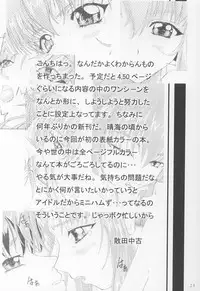 こんちはっ。なんだかよくわからんもん
を作っちまった。予定だと4,50ページ
ぐらいになる内容の中のワンシーン
をなんとか形に、しようしようと努力した
ことに設立上なってます。ちなみに
何年ぶりかの新刊だ。晴海の頃から
いるのに今回が初の表紙カラーの本。
今や世の中は全ページフルカラー
なんて本がごろごろしてるのに・・・
やる気が大事だね。気持ちの問題だな
とにかく何が言いたいかっていうと
アイドルだからミニハムず・・・ってなるの
そういうことです。じゃっボク忙しいから
散田中古